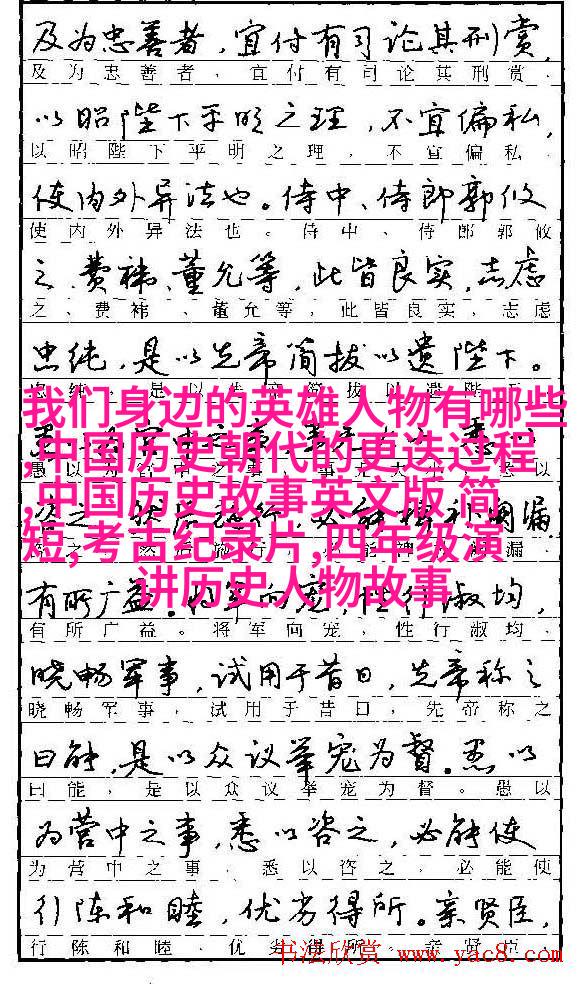 及为忠善者，宜付有司论其刑赏，
及为忠善者，宜付有司论其刑赏，
以昭陛下平明之理，不宜偏私，
以昭陛下平明之理，不宜偏私，
使内外异法也。侍中、侍郎郭攸
使内外异法也。侍中、侍郎郭攸
之、费祎、董允等，此皆良实，志虑
之、费祎、董允等，此皆良实，志虑
忠纯，是以先帝简拔以遗陛下。
我们身边的英雄人物有哪些
,中国历史朝代的更迭过程
,中国历史故事英文版 简
短,考古纪录片,四年级演
讲历史人物故事
有所广益。将军向宠，性行淑均，
有所广益。将军向宠，性行淑均，
晓畅军事，试用于昔日，先帝称之
晓畅军事，试用于昔日，先帝称之
曰能，是以众议举宠为督。愚以
曰能，是以众议举宠为督。愚以
为营中之事，悉以咨之，必能使
为营中之事，悉以咨之，必能使
行陈和睦，优劣得所。亲贤臣，
行陈和睦，优劣得所。亲贤臣，
书法欣赏 www.yac8.com